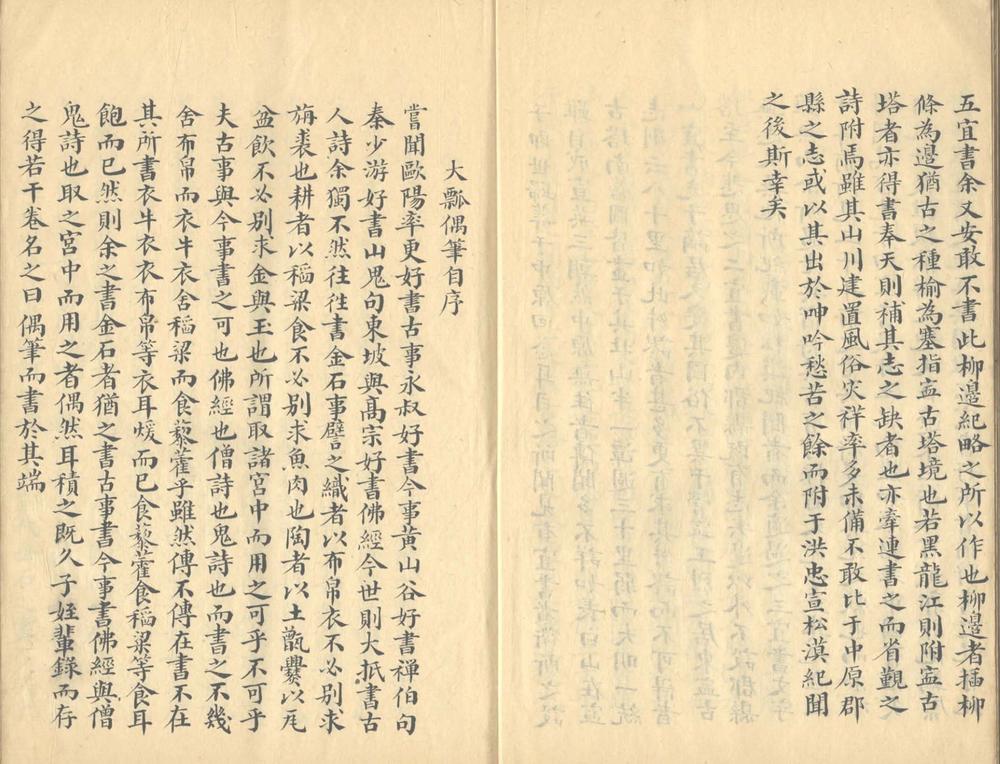 五宜書余又安敢不書此柳邊紀略之所以作也柳邊者插柳
條為邊猶古之種榆為塞指寍古塔境也若黑龍江則附寍古
塔者亦得書奉天則補其志之缺者也亦牽連書之而省觀之
詩附焉雖其山川建置風俗灾祥率多未備不敢比于中原郡
縣之志或以其出於呻吟愁苦之餘而附于洪忠宣松漠紀聞
之後斯幸矣
大瓢偶筆自序
嘗聞歐陽率更好書古事永叔好書今事黃山谷好書禅伯句
秦少游好書山鬼句東坡與高宗好書佛經今世則大抵書古
人詩余獨不然往往書金石事譬之織者以布帛衣不必別求
旃裘也耕者以稻粱食不必別求魚肉也陶者以土甑爨以瓦
盆飲不必別求金與玉也所謂取諸宮中而用之可乎不可乎
夫古事與今事書之可也佛經也僧詩也鬼詩也而書之不幾
舍布帛而衣牛衣舍稻粱而食藜藿乎雖然傳不傳在書不在
其所書衣牛衣衣布帛等衣耳煖而已食藜藿食稻粱等食耳
飽而已然則余之書金石者猶之書古事書今事書佛經與僧
鬼詩也取之宮中而用之者偶然耳積之既久子姪輩錄而存
之得若干卷名之曰偶筆而書於其端